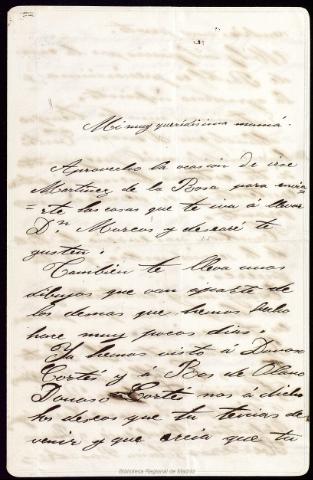 Mi muy queridísima mamá.
Aprovecho la ocasion de irse
Martinez de la Rosa para envia
=rte las cosas que te iva á llevar
Dn Marcos y desearé te
gusten.
Tambien te lleva unos
dibujos que van aparte de
los demas que hemos hecho
hace muy pocos dias.
Ya hemos visto á Donoso
Cortés y á Ros de Olano
Donoso Cortés nos á dicho
los deseos que tu tenias de
venir y que creia que tu
Biblioteca Regional de Madrid